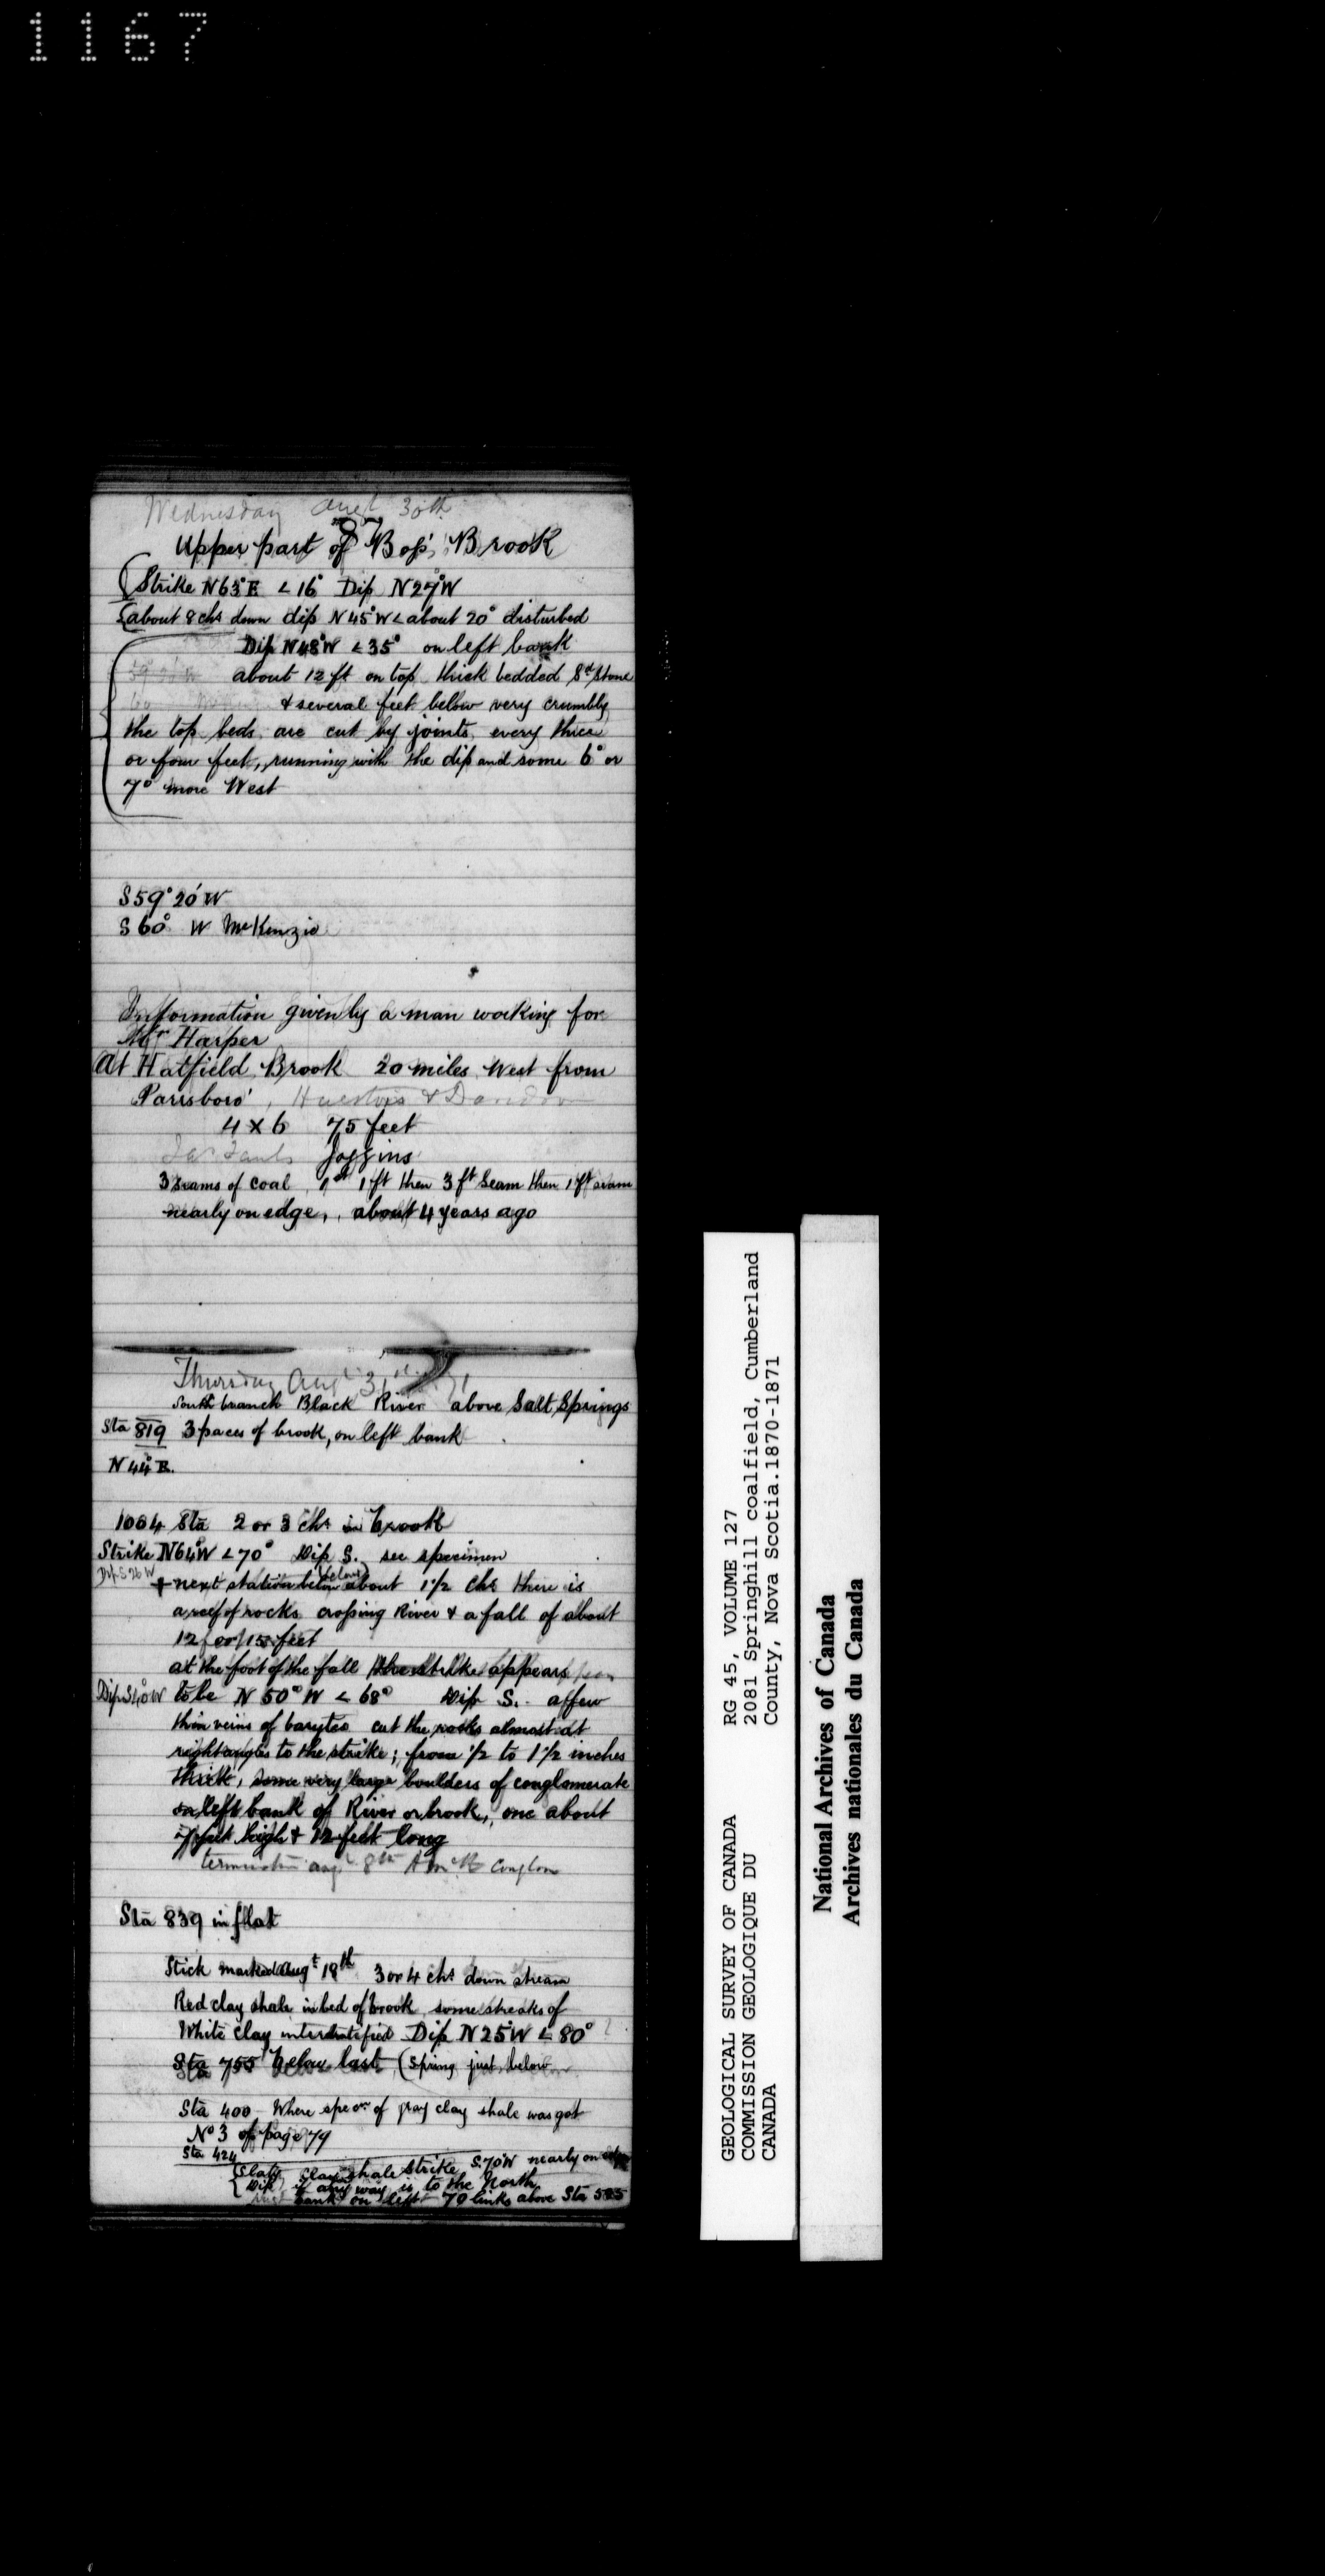 1167
Wednesday Augt 30th
87
Upper part of Bos's Brook
Strike N63°E < 16° Dip N27°W
about 8 chs down dip N45°W < about 20° disturbed
Dip N48°W < 35° on left bank
about 12 ft on top thick bedded Sd Stone
& several feet below very crumbly
the top beds are cut by joints every three
or four feet, running with the dip and some 6° or
7° more West
S59°20'W
S60° W McKenzie
Information given by a man working for
Mr Harper
At Hatfield Brook 20 miles West from
Parrsboro',
4 x 6 75 feet
Joggins
3 seams of coal 1st 1 ft then 3 ft Seam then 1 ft seam
nearly on edge, about 4 years ago
Thursday Augt 31st 71
South branch Black River above Salt Springs
Sta 819 3 paces of brook, on left bank
N44°E.
1004 Sta 2 or 3 chs in brook
Strike N64°W < 70° Dip S. see specimen
Dip S 26 W
+ next station below (below) about 1 1/2 chs there is
a reef of rocks crossing River & a fall of about
12 or 15 feet
at the foot of the fall the strike appears
Dip S40W to be N 50° W < 68° Dip S. a few
thin veins of barytes cut the rocks almost at
right angles to the strike; from 1/2 to 1 1/2 inches
thick, some very large boulders of conglomerate
on left bank of River or brook, one about
7 feet high & 12 feet long
Augt 8th
Sta 839 in flat
Stick marked Augt 18th 3 or 4 chs down stream
Red clay shale in bed of brook some streaks of
White clay interstratified Dip N25°W < 80° ?
Sta 755 below last (Spring just below
Sta 400 Where specn of gray clay shale was got
No 3 of page 79
Sta 424
Slaty clay shale Strike S.70°W nearly on edge
Dip if any way is to the North
bank on left 70 links above Sta 585
GEOLOGICAL SURVEY OF CANADA
COMMISSION GEOLOGIQUE DU
CANADA
RG 45, VOLUME 127
2081 Springhill coalfield, Cumberland
County, Nova Scotia.1870-1871
National Archives of Canada
Archives nationales du Canada